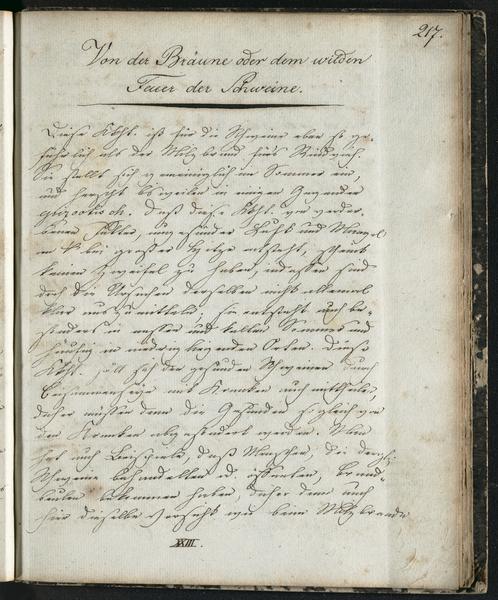 217.
Von der Bräune oder dem wilden
Feuer der Schweine.
Diese Kkht. ist für die Schweine eben so ge-
fährlich als der Milzbrand fürs Rindvieh.
Sie stellt sich gemeiniglich im Sommer ein,
und herrscht bisweilen in einigen Gegenden
epizootisch. Daß diese Kkht. von verdor-
benem Futter, ungesunder Luft und Mangel
an bei großer Hitze entsteht, scheint
keinen Zweifel zu haben, indessen sind
doch die Ursachen derselben nicht allemal
klar auszumitteln; sie entsteht auch be-
sonders in nassen und kalten Sommer und
häufig in niedrig liegenden Orten. Diese
Kkht. soll sich der gesunden Schweinen durch
mit Kranken auch mittheilen,
daher müssen denn die Gesunden sogleich von
den Kranken abgesondert werden. Man
hat auch Beispiele, daß Menschen, die dergl.
Schweine behandelten od. Brand-
beulen bekommen haben, daher denn auch
hier dieselbe Vorsicht wie beim Milzbrande
XXIII.